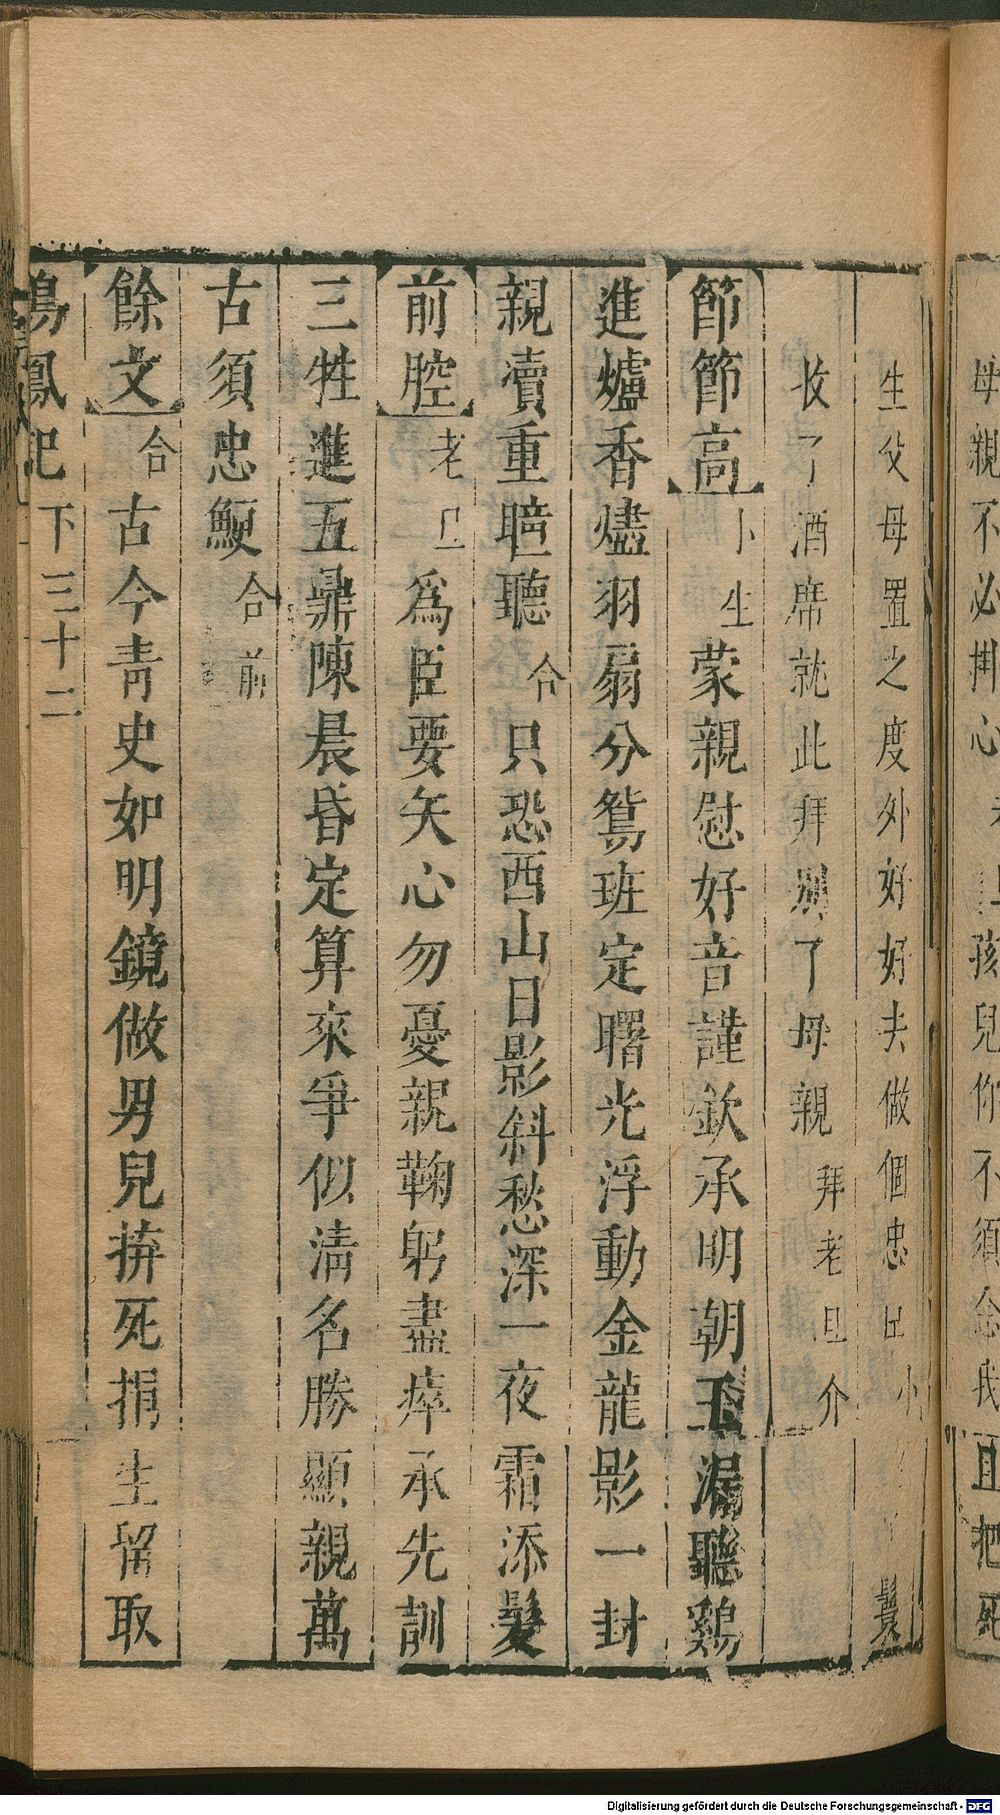 母親不必掛心
孩兒你不須念我且把死
生父母置之度外好好去做個忠臣
鬟
收了酒席就此拜別了母親 拜老旦介
節節高 小生 蒙親慰好音謹欽承明朝玉漏聽鷄
進爐香燼羽扇分鴛班定曙光浮動金龍影一封
親瀆重瞳聽 合 只恐西山日影斜愁深一夜霜添髮
前腔 老旦 為臣要矢心勿憂親鞠躬盡瘁承先訓
三牲進五鼎陳晨昏定算來爭似清名勝顯親萬
古須忠鯁 合前
餘文 合 古今青史如明鏡做男兒拚死捐生留取
鳴鳳記 下 三十二
Digitalisierung gefördert durch die Deutsche Forschungsgemeinschaft - DFG